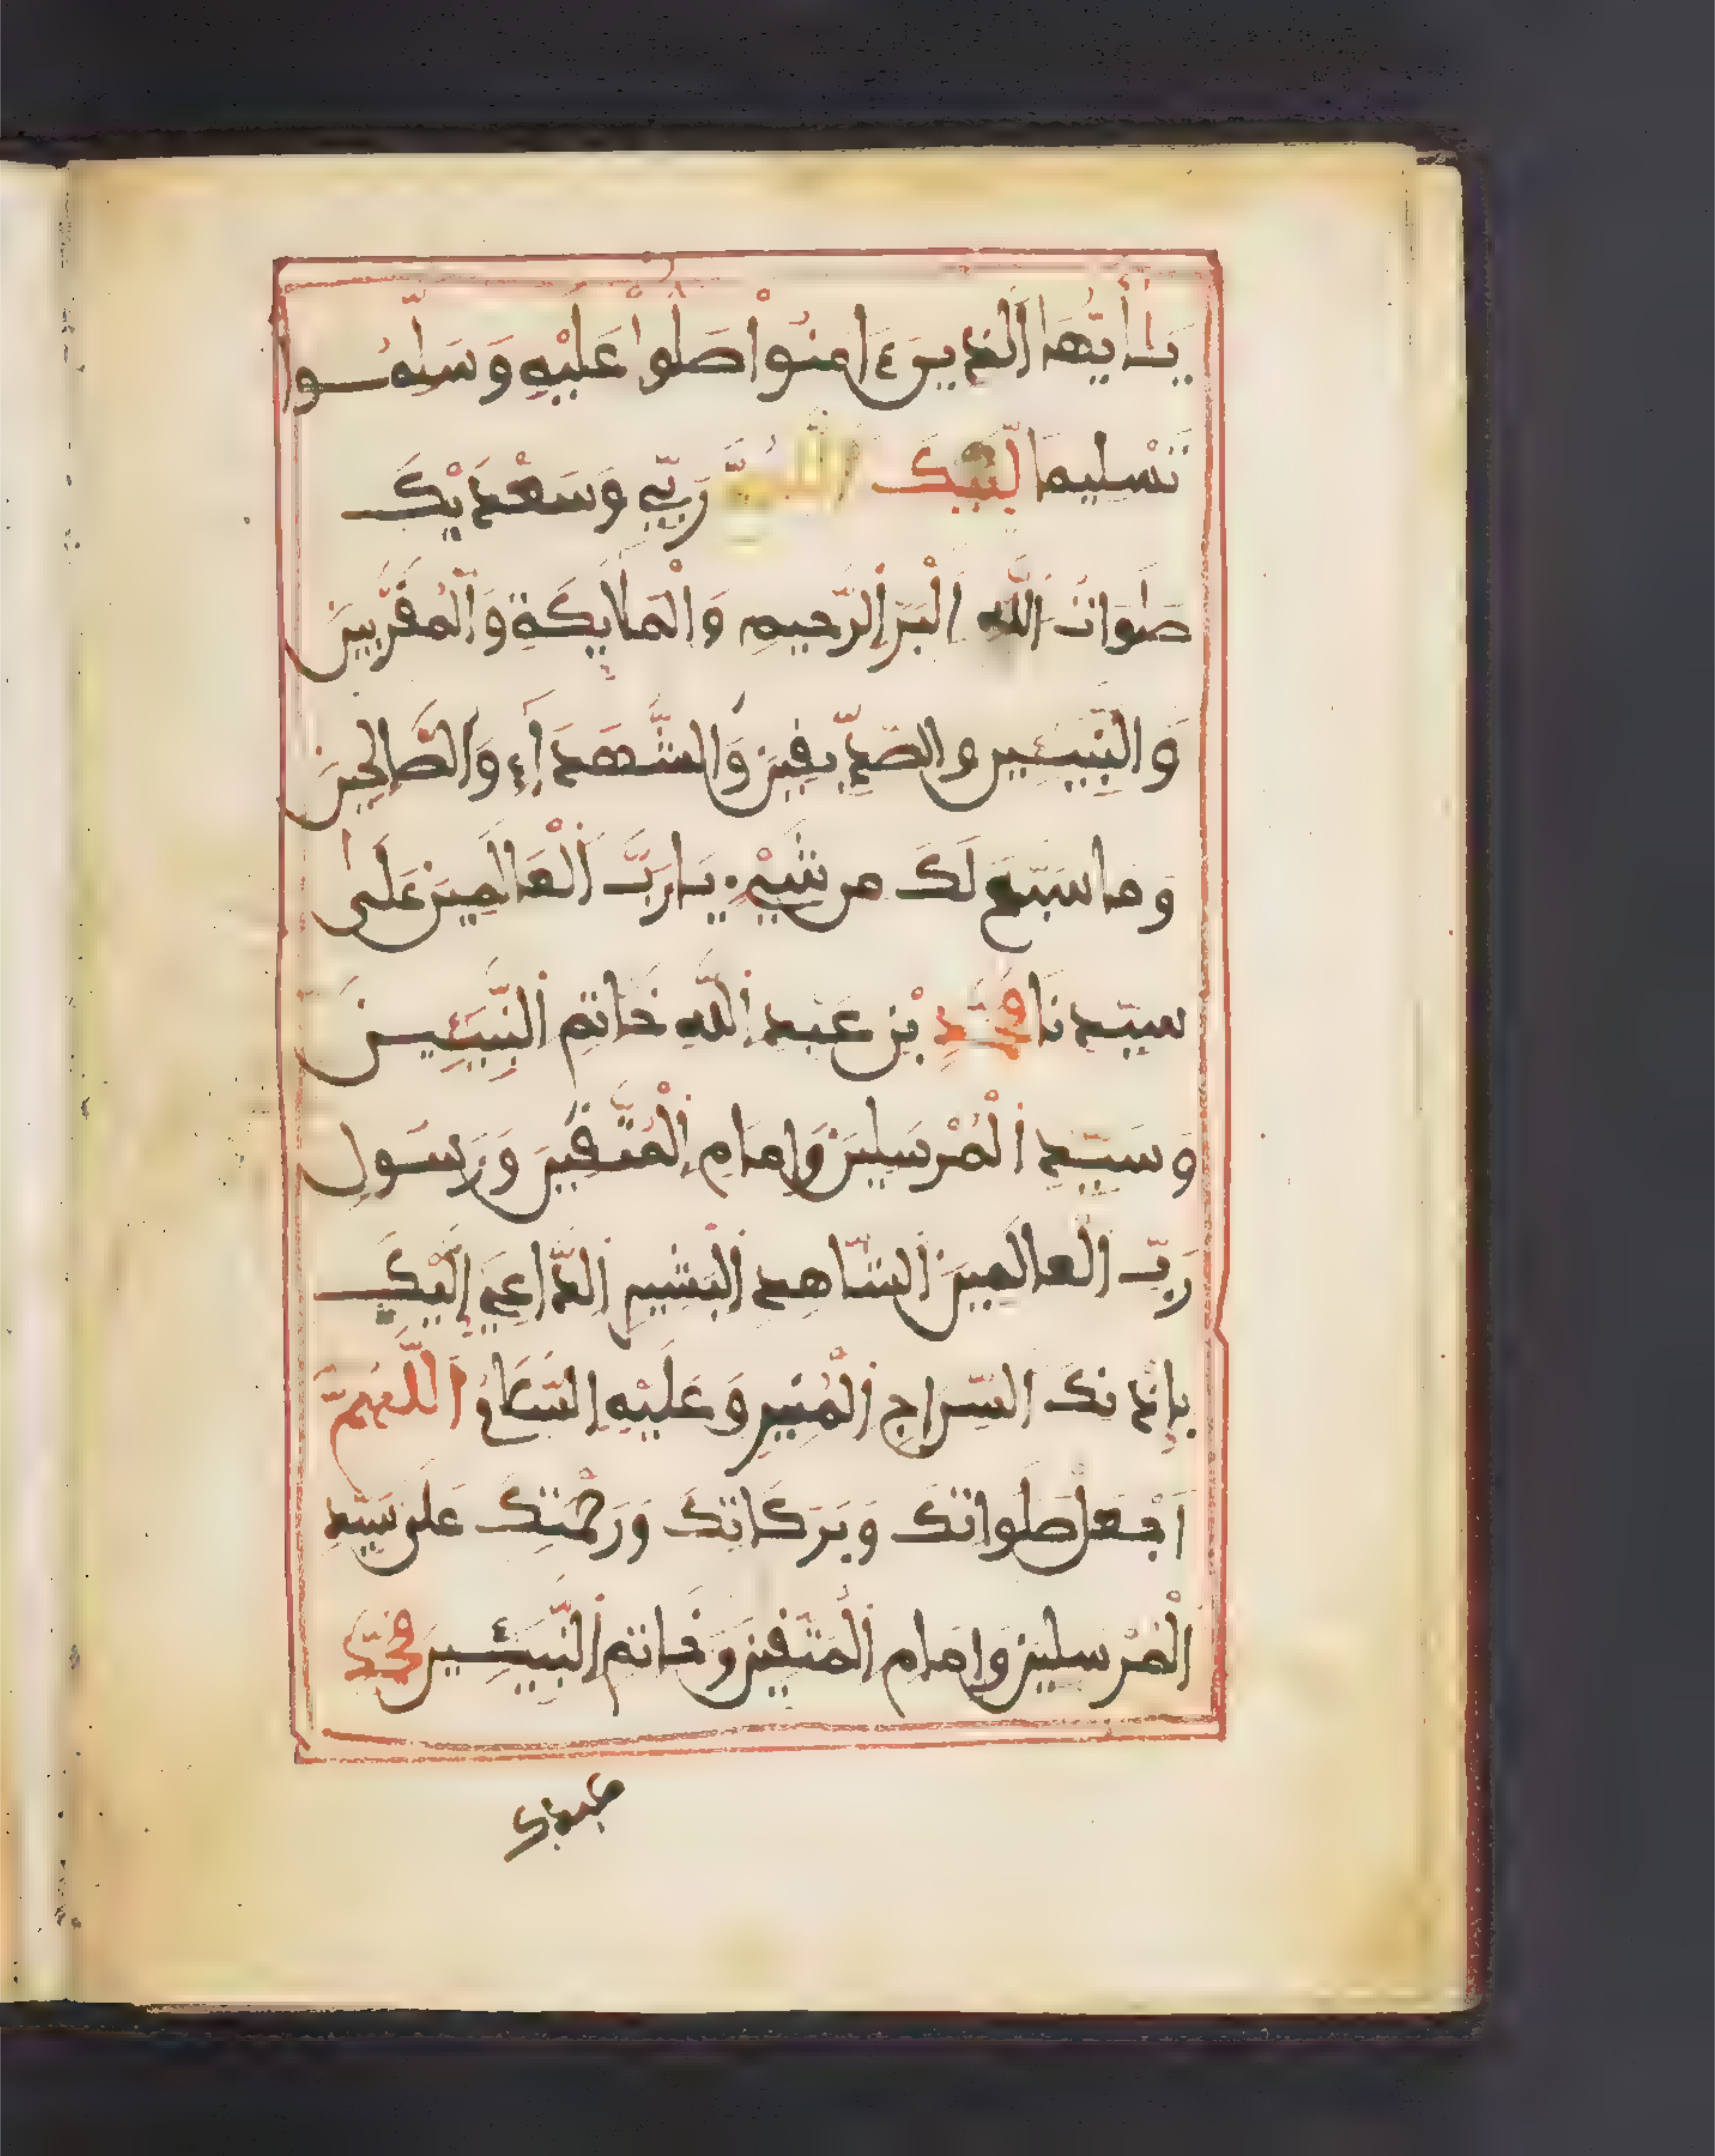 يَٰأَيُّهَا اَلَّذِينَ ءَامَنُواْ صَلُّواْ عَلَيْهِ وَسَلِّمُوا
تَسْلِيما لَبَّيْكَ اَللَّهُمَّ رَبِّي وَسَعْدَيْكَ
صَلَوَاتُ اللَّهِ اِلْبَرِّ اِلرَّحِيمِ وَالْمَلَايِكَةِ وَالْمُقَرَّبِينَ
وَالنَّبِيـِٕينَ وَالصِّدِّيقِينَ وَالشُّهَدَآءِ وَالصَّالِحِينَ
وَمَا سَبَّحَ لَكَ مِن شَيْءٍ يَا رَبَّ اَلْعَالَمِينَ عَلَىٰ
سَيِّدِنَا مُحَمَّدِ بْنِ عَبْدِ اِللَّهِ خَاتِمِ اِلنَّبِيـِٕينَ
وَسَيِّدِ اِلْمُرْسَلِينَ وَإِمَامِ اِلْمُتَّقِينَ وَرَسُولِ
رَبِّ اِلْعَالَمِينَ اَلشَّاهِدِ اِلْبَشِيرِ اِلدَّاعِي إِلَيْكَ
بِإِذْنِكَ السِّرَاجِ اِلْمُنِيرِ وَعَلَيْهِ اِلسَّلَامُ اَللَّهُمَّ
اَجْعَل صَلَوَاتِكَ وَبَرَكَاتِكَ وَرَحْمَتَكَ عَلَى سَيِّدِ
اِلْمُرْسَلِينَ وَإِمَامِ اِلْمُتَّقِينَ وَخَاتِمِ اِلنَّبِيـِٕينَ مُحَمَّدٍ
عبدك